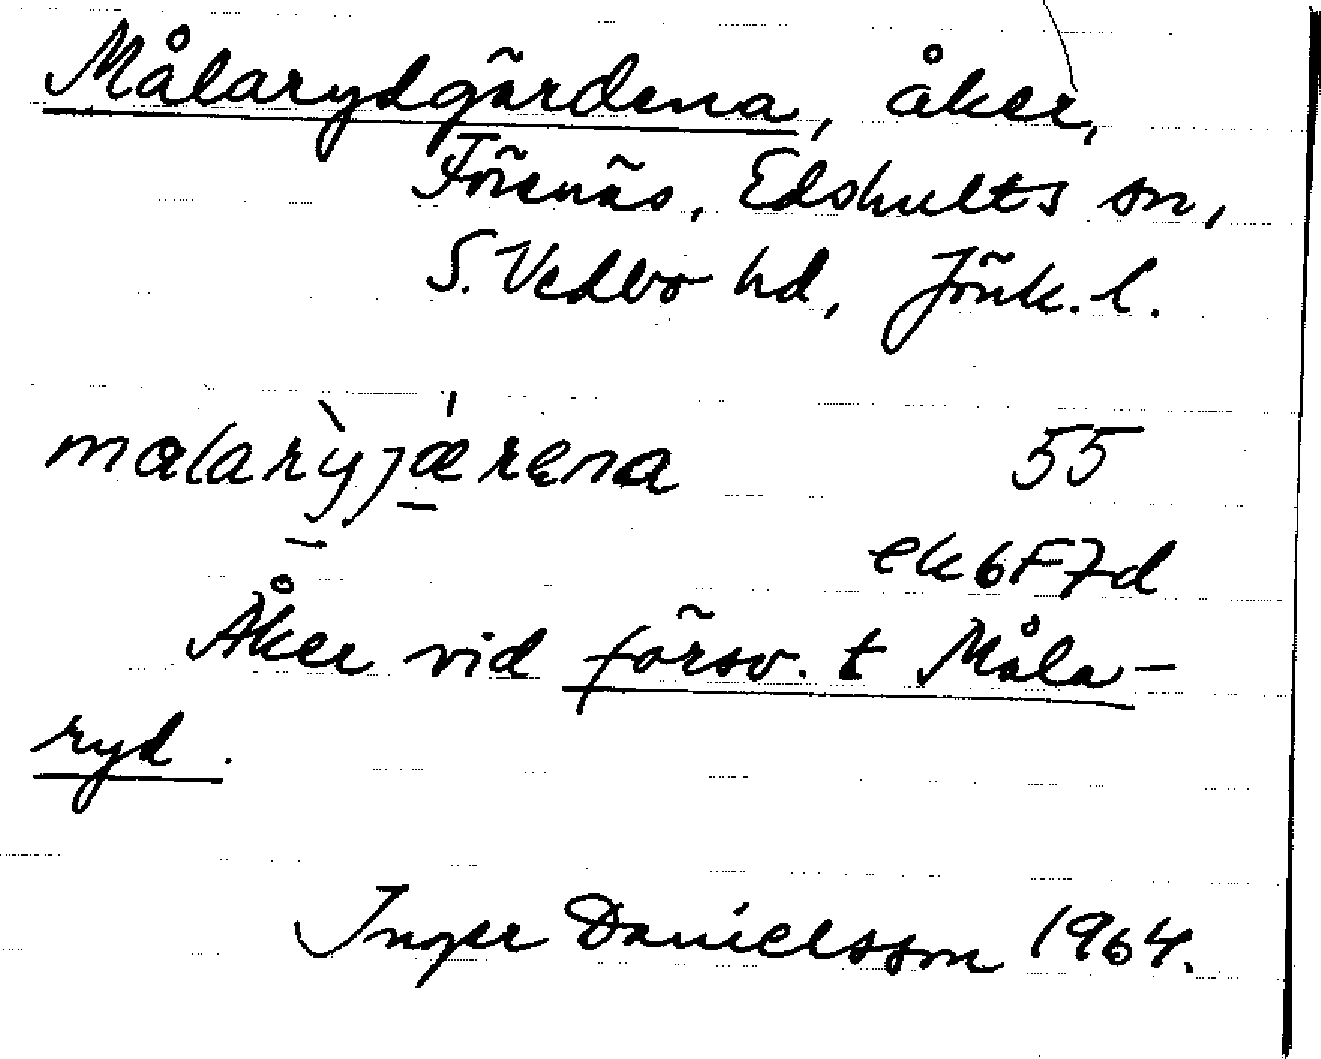 Målarydgärdena, åker,
Försnäs, Edshults sn,
S. Vedbo hd, Jönk. l.
malarỳjǽrena 55
ek6F7d
Åker vid försv. t Måla-
ryd.
Inger Danielsson 1964.